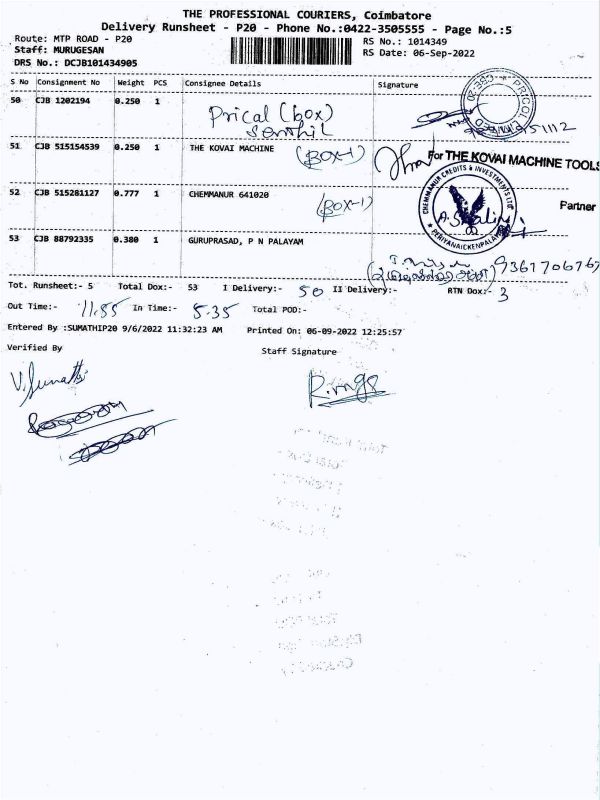 THE PROFESSIONAL COURIERS, Coimbatore
Delivery Runsheet - P20 - Phone No.:0422-3505555 - Page No.:5
Route: MTP ROAD - P20
RS No.: 1014349
Staff: MURUGESAN
RS Date: 06-Sep-2022
DRS No.: DCJB101434905
S No Consignment No Weight PCS Consignee Details Signature
50 CJB 1202194 0.250 1 Prical (box)
Senthil
PRICOL LIMITED
51 CJB 515154539 0.250 1 THE KOVAI MACHINE (BOX-1)
For THE KOVAI MACHINE TOOLS
Partner
52 CJB 515281127 0.777 1 CHEMMANUR 641020 (BOX-1)
CHEMMANUR CREDITS & INVESTMENTS LTD
* PERIYANAICKENPALAYAM
53 CJB 88792335 0.380 1 GURUPRASAD, P N PALAYAM
9361706767
Tot. Runsheet:- 5 Total Dox:- 53 I Delivery:- 50 II Delivery:- RTN Dox:- 3
Out Time:- 11.55 In Time:- 5.35 Total POD:-
Entered By :SUMATHIP20 9/6/2022 11:32:23 AM Printed On: 06-09-2022 12:25:57
Verified By Staff Signature
V. Sumathi